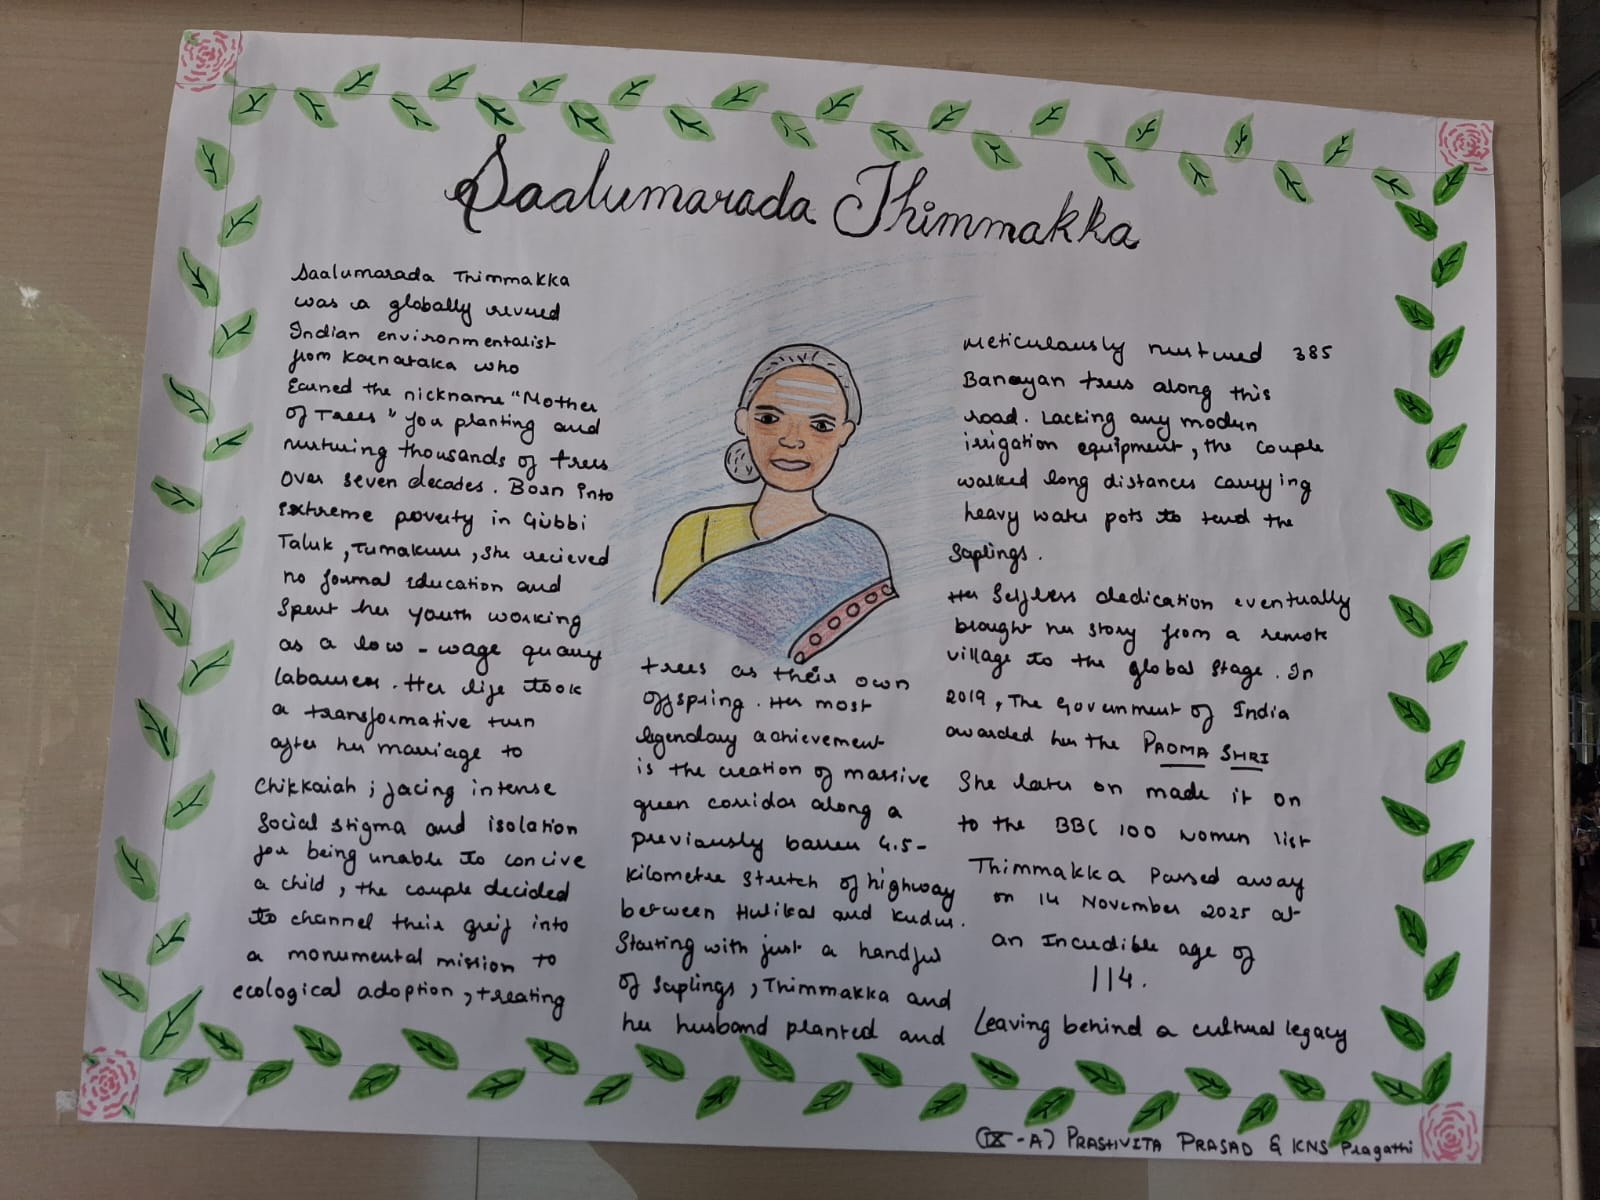 Saalumarada Thimmakka
Saalumarada Thimmakka
was a globally revered
Indian environmentalist
from Karnataka who
Earned the nickname "Mother
of Trees" for planting and
nurturing thousands of trees
over seven decades. Born into
extreme poverty in Gubbi
Taluk, Tumakuru, she recieved
no formal education and
spent her youth working
as a low-wage quarry
labourer. Her life took
a transformative turn
after her marriage to
Chikkaiah; facing intense
social stigma and isolation
for being unable to concive
a child, the couple decided
to channel their greif into
a monumental mission to
ecological adoption, treating
trees as their own
offspring. Her most
legendary achievement
is the creation of massive
green corridor along a
previously barren 4.5-
kilometre stretch of highway
between Hulikal and Kudur.
Starting with just a handful
of saplings, Thimmakka and
her husband planted and
meticulously nurtured 385
Banayan trees along this
road. Lacking any modern
irrigation equipment, the couple
walked long distances carrying
heavy water pots to tend the
saplings.
Her selfless dedication eventually
brought her story from a remote
village to the global stage. In
2019, The Government of India
awarded her the PADMA SHRI
She later on made it on
to the BBC 100 women list
Thimmakka passed away
on 14 November 2025 at
an Incredible age of
114.
Leaving behind a cultural legacy
(IX-A) PRASHVITA PRASAD & KNS Pragathi